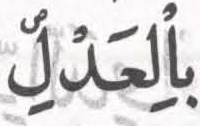 بِالْعَدْلِ